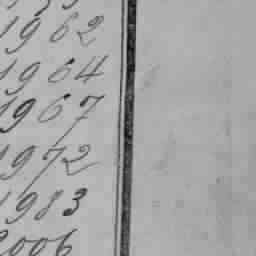 1962
1964
1967
1972
1983
2006